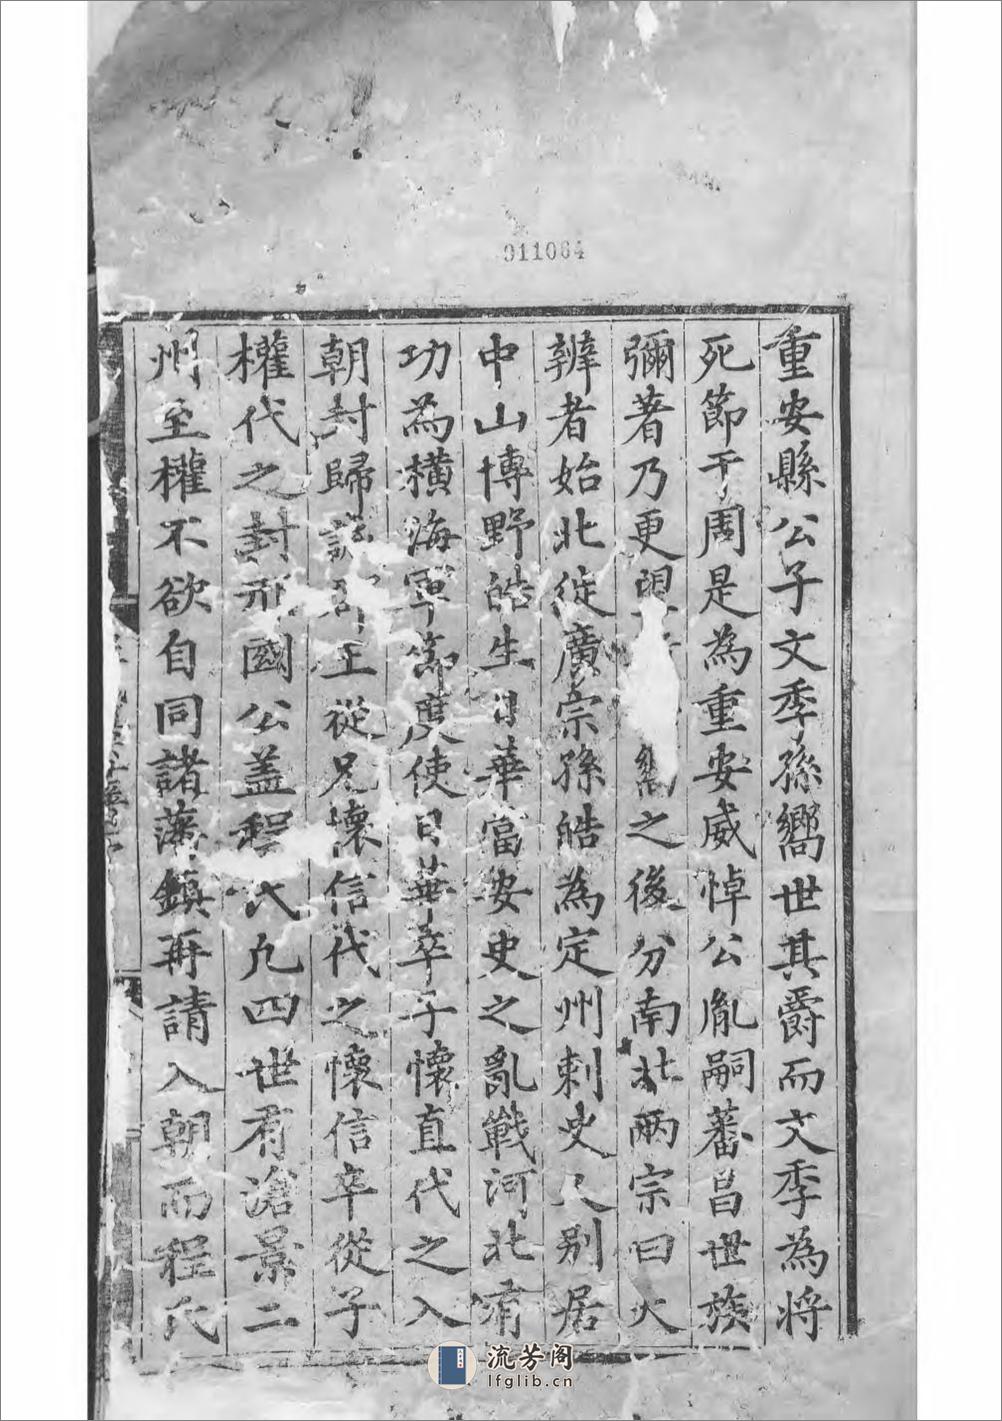 911064
重安縣公子文季孫嚮世其爵而文季為將
死節于周是為重安威悼公胤嗣蕃昌世族
彌著乃更之後分南北兩宗曰火
辨者始北徙廣宗孫皓為定州刺史又別居
中山博野皓生日華當安史之亂戰河北有
功為橫海軍節度使日華卒子懷直代之入
朝封歸王從兄懷信代之懷信卒從子
權代之封邢國公蓋程氏凡四世有滄景二
州至權不欲自同諸藩鎮再請入朝而程氏
流芳阁
lfglib.cn